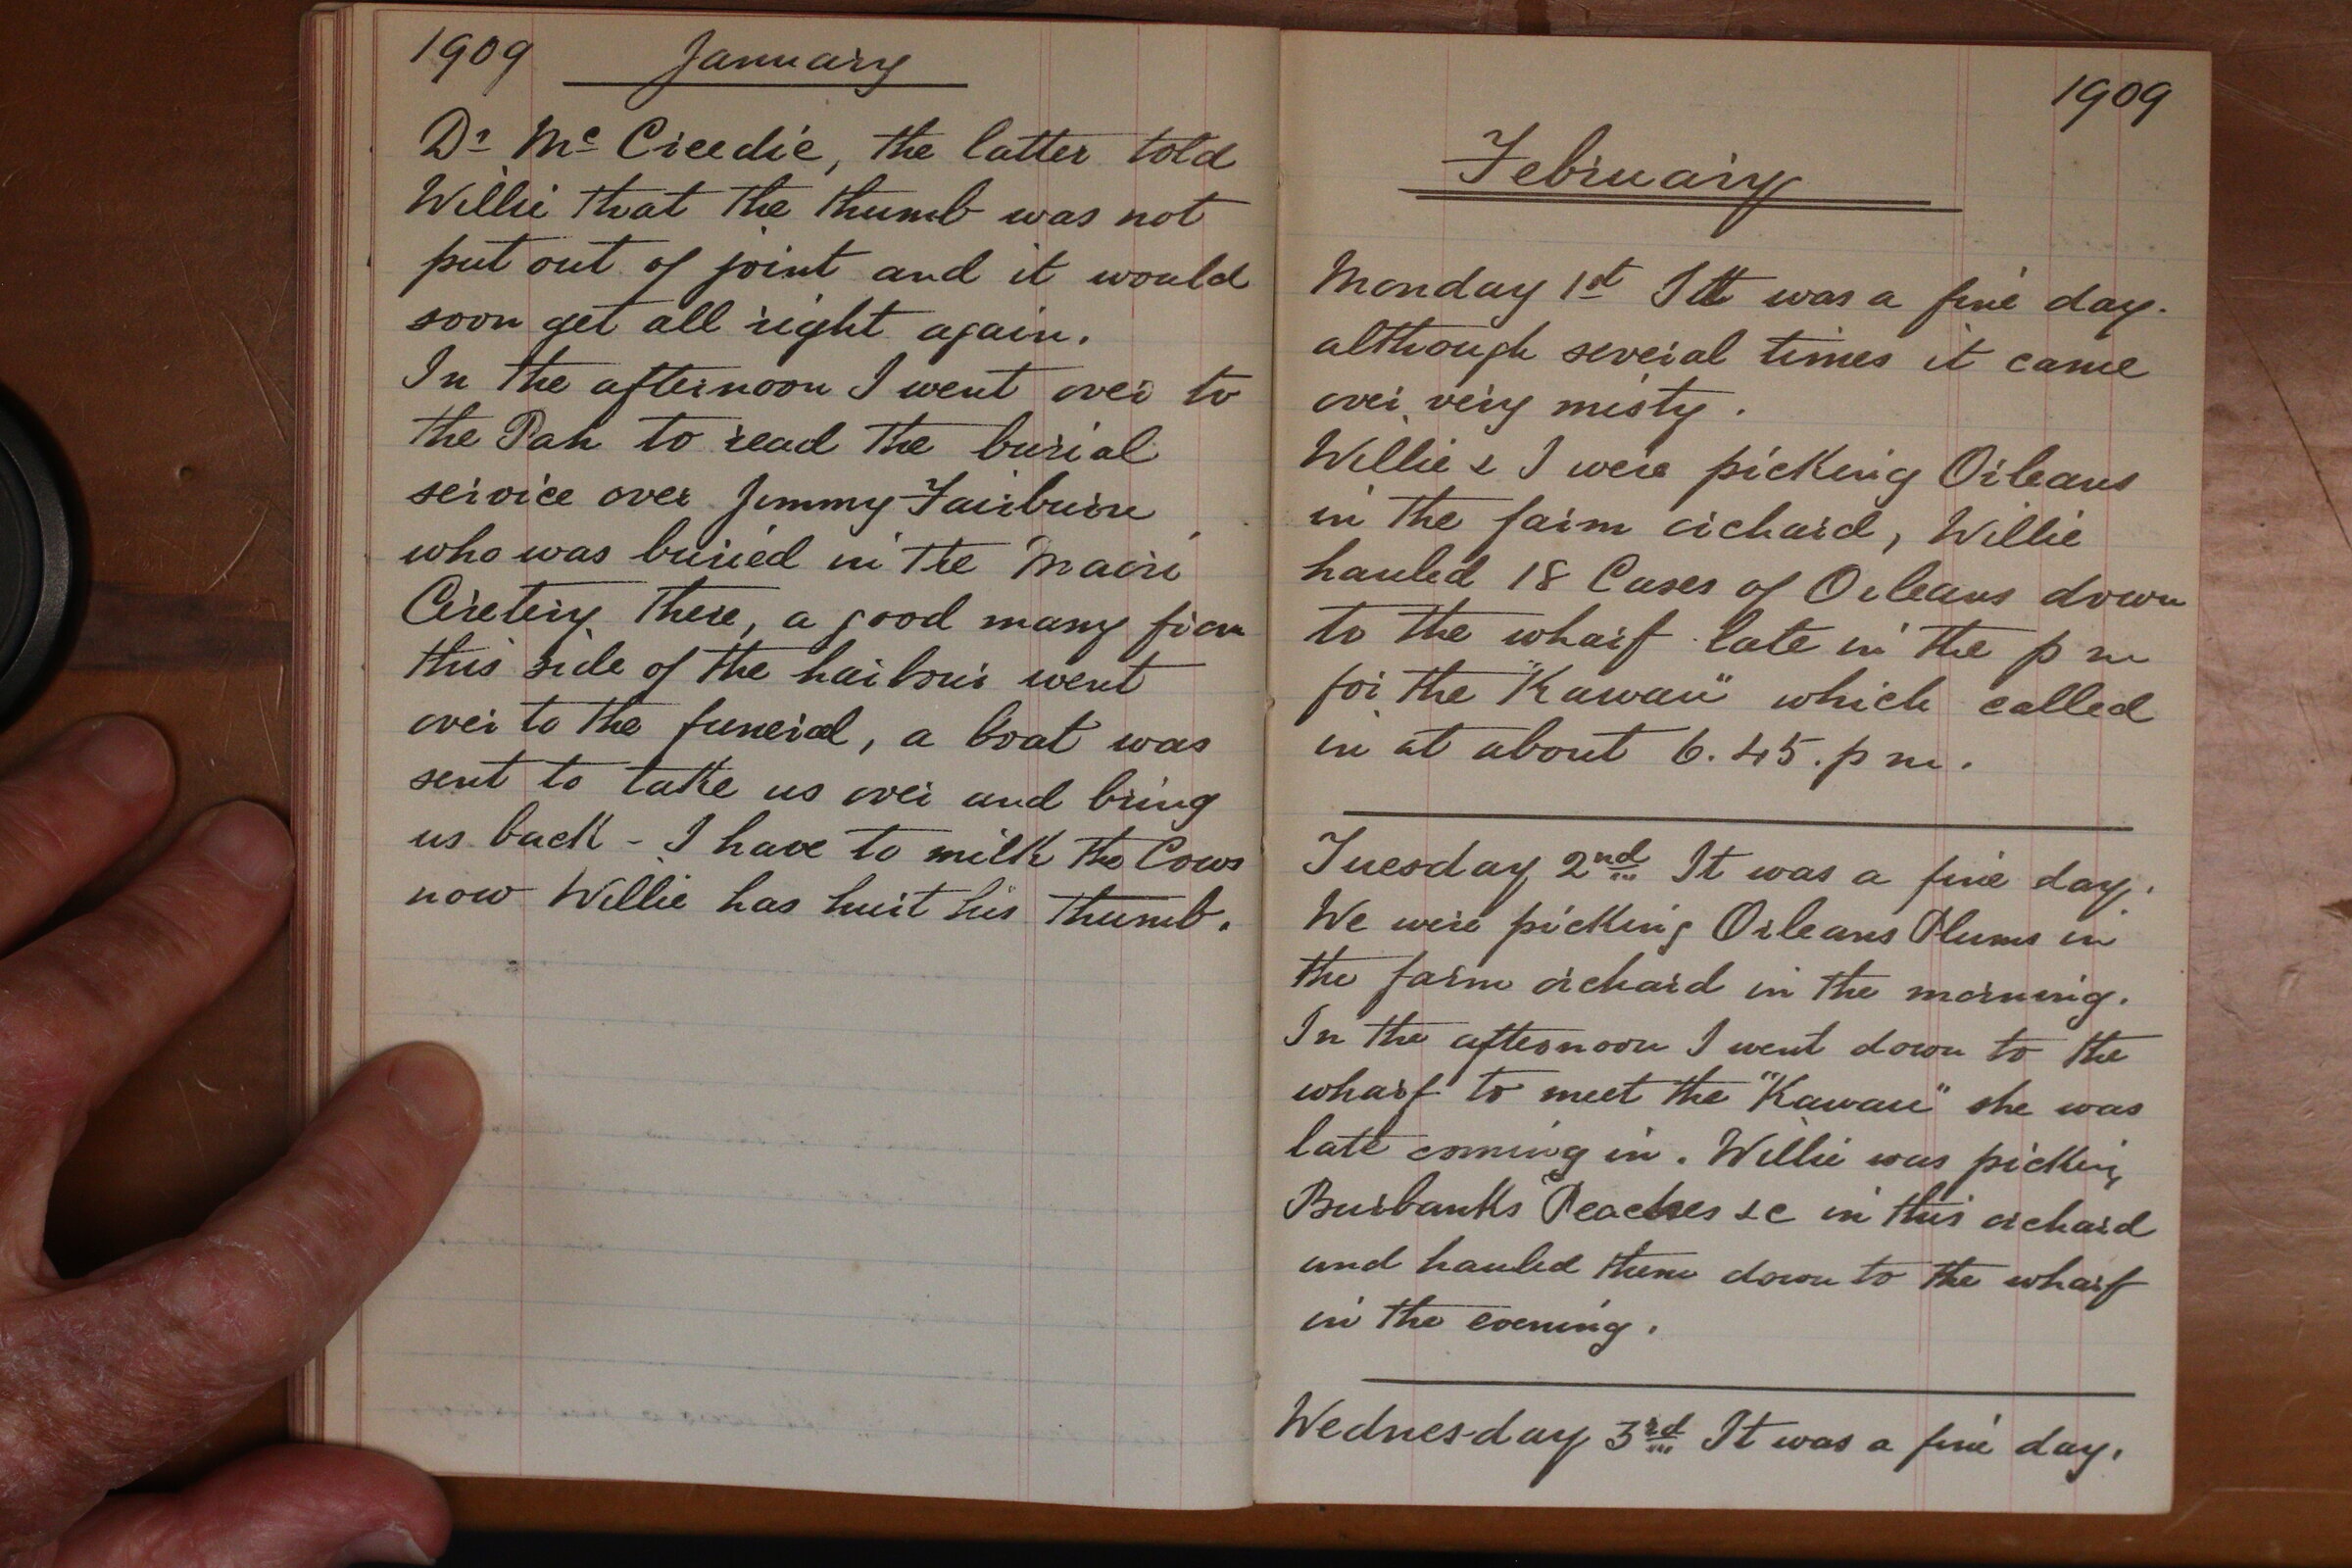 1909 January
Dr Mc Creedie, the latter told
Willie that the thumb was not
put out of joint and it would
soon get all right again.
In the afternoon I went over to
the Pah to read the burial
service over Jimmy Fairburn
who was buried in the Maori
there, a good many from
this side of the harbour went
over to the funeral, a boat was
sent to take us over and bring
us back - I have to milk the Cows
now Willie has hurt his thumb.
1909
February
Monday 1st It was a fine day.
although several times it came
over very misty.
Willie & I were picking Orleans
in the farm orchard, Willie
hauled 18 Cases of Orleans down
to the wharf late in the p m
for the "Kawau" which called
in at about 6.45. p m.
Tuesday 2nd It was a fine day.
We were picking Orleans Plums in
the farm orchard in the morning.
In the afternoon I went down to the
wharf to meet the "Kawau" she was
late coming in. Willie was picking
Burbanks Peaches &c in this orchard
and hauled them down to the wharf
in the evening.
Wednesday 3rd It was a fine day.